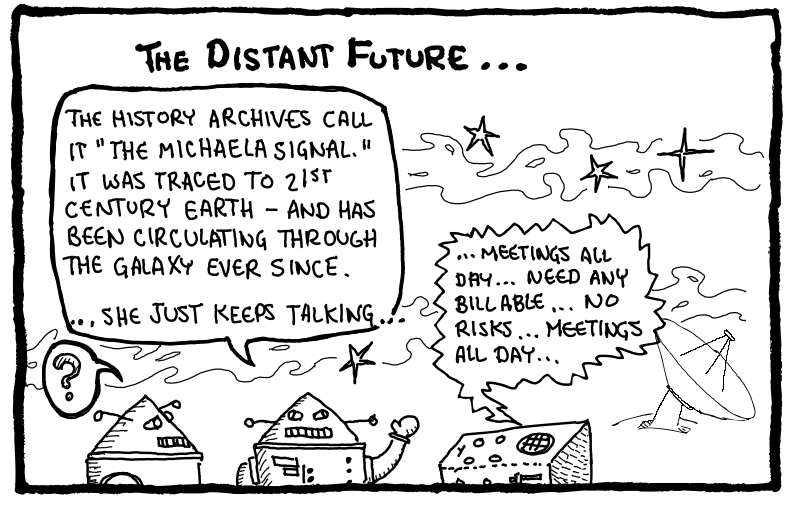 THE DISTANT FUTURE...
THE HISTORY ARCHIVES CALL
IT "THE MICHAELA SIGNAL."
IT WAS TRACED TO 21ST
CENTURY EARTH – AND HAS
BEEN CIRCULATING THROUGH
THE GALAXY EVER SINCE.
... SHE JUST KEEPS TALKING...
?
... MEETINGS ALL
DAY... NEED ANY
BILLABLE... NO
RISKS... MEETINGS
ALL DAY...